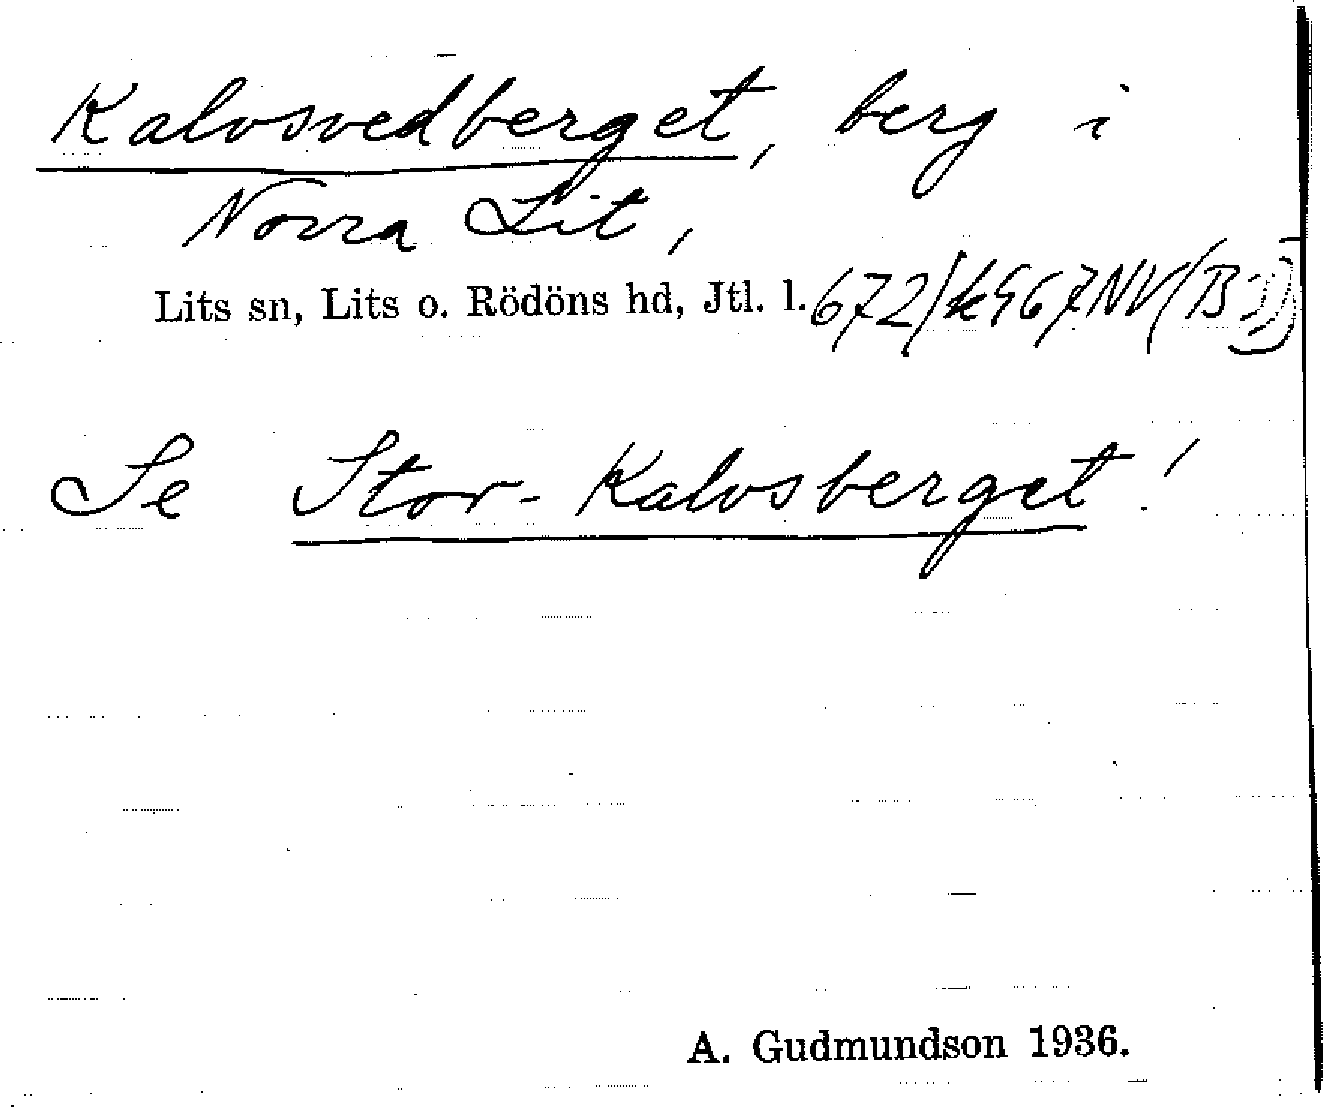 Kalvsvedberget, berg i
Norra Lit,
Lits sn, Lits o. Rödöns hd, Jtl. l.
Se Stor-Kalvsberget!
A. Gudmundson 1936.